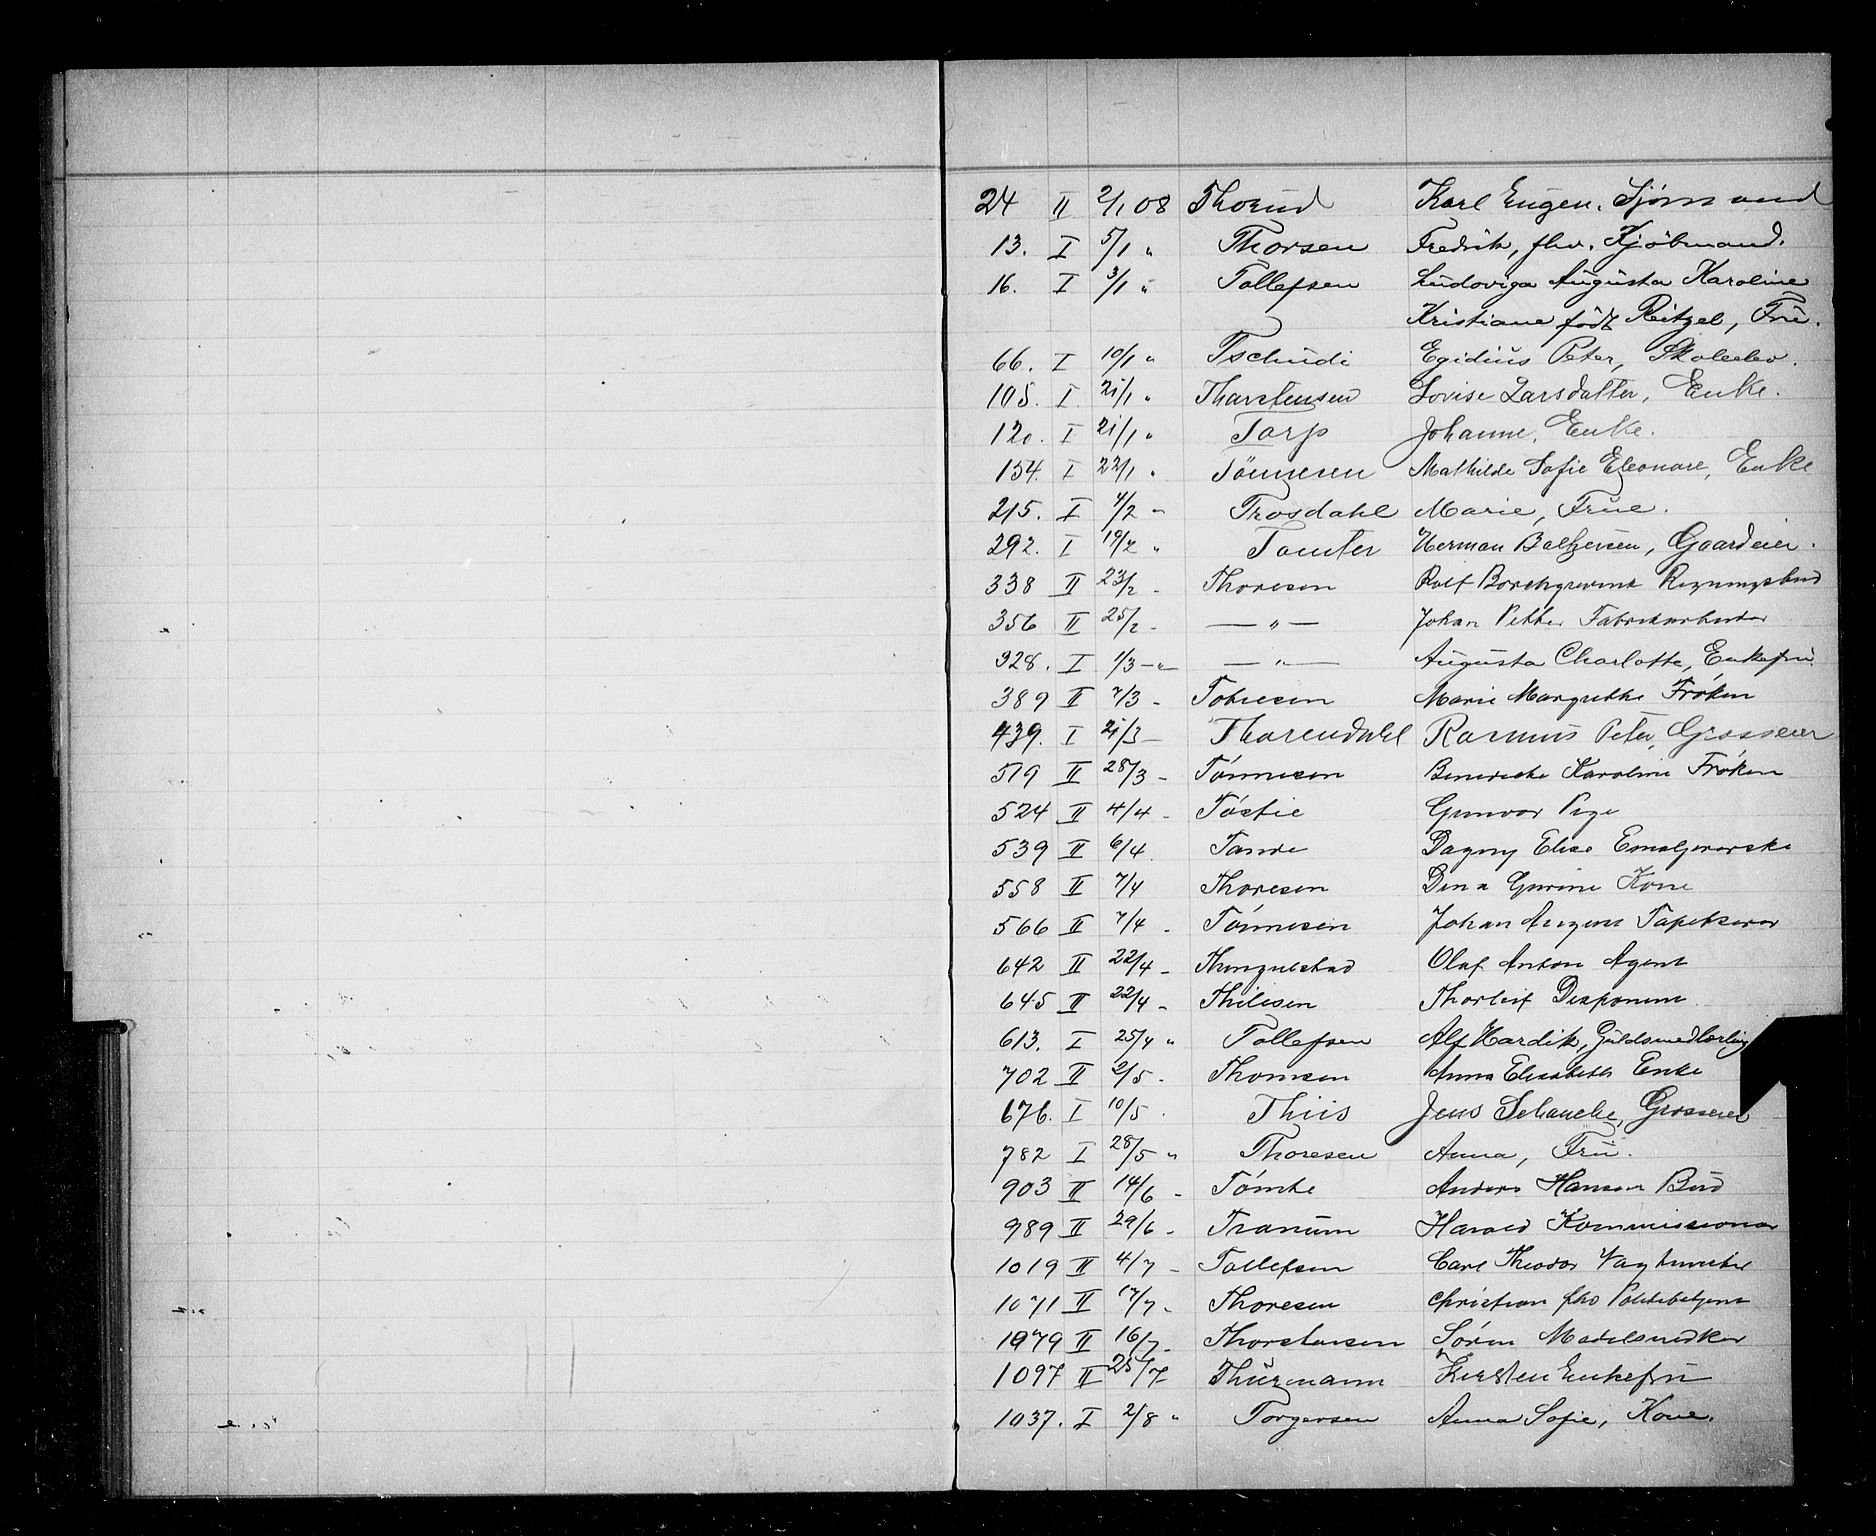 24 II 2/1 08 Thorud Karl Eugen. Sjømand
13. I 5/1 " Thorsen Fredrik, fhv. Kjöbmand.
16. I 3/1 " Tollefsen Ludoviga Augusta Karoline
Kristiane född Reitzel, Frü.
66. I 10/1 " Tschüdi Egidiüs Peter,
105. I 21/1 " Thorstensen Lovise Larsdatter, Enke.
120. I 21/1 " Torp Johanne, Enke.
154. I 22/1 " Tönnesen Mathilde Sofie Eleonore, Enke
215. I 4/2 " Trosdahl Marie, Früe.
292. I 19/2 " Tomter Herman Baltzersen, Gaardeier.
338 II 23/2 - Thoresen Rolf Borchgrevink Regningsbud
356 II 25/2 - — " — Johan Petter Fabrikarbeider
328. I 1/3 - " - — " — Augusta Charlotte, Enkefrü.
389 II 7/3 - Tobiesen Marie Margrethe Frøken
439. I 21/3 - Thorendahl Rasmus Peter, Grosserer
519 II 28/3 - Tønnesen Benedicte Karoline Frøken
524 II 4/4 - Tøstie Gunvor Pige
539 II 6/4 Tande Dagny Elise
558 II 7/4 Thoresen Dina Gurine Kone
566 II 7/4 - Tønnesen Johan August Tapetserer
642 II 22/4 - Thingelstad Olaf Anton Agent
645 II 22/4 - Thilesen Thorleif Disponent
613. I 25/4 " Tollefsen Alf Hardik, Guldsmedlærling
702 II 2/5 - Thomsen Anna Elisabeth Enke
676. I 10/5 . Thiis Jens Schancke, Grosserer
782 I 28/5 " Thoresen Anna, Frü.
903 II 14/6 - Tømte Anders Hansen Bud
989 II 29/6 - Tranüm Harald Kommissionær
1019 II 4/7 - Tollefsen Carl Theodor Vagtmester
1071 II 17/7 - Thoresen Christian fhv Politibetjent
1979 II 16/7 - Thorstensen Søren Modelsnedker
1097 II 25/7 Thürmann Kirsten Enkefrü
1037. I 2/8 " Torgersen Anna Sofie, Kone.